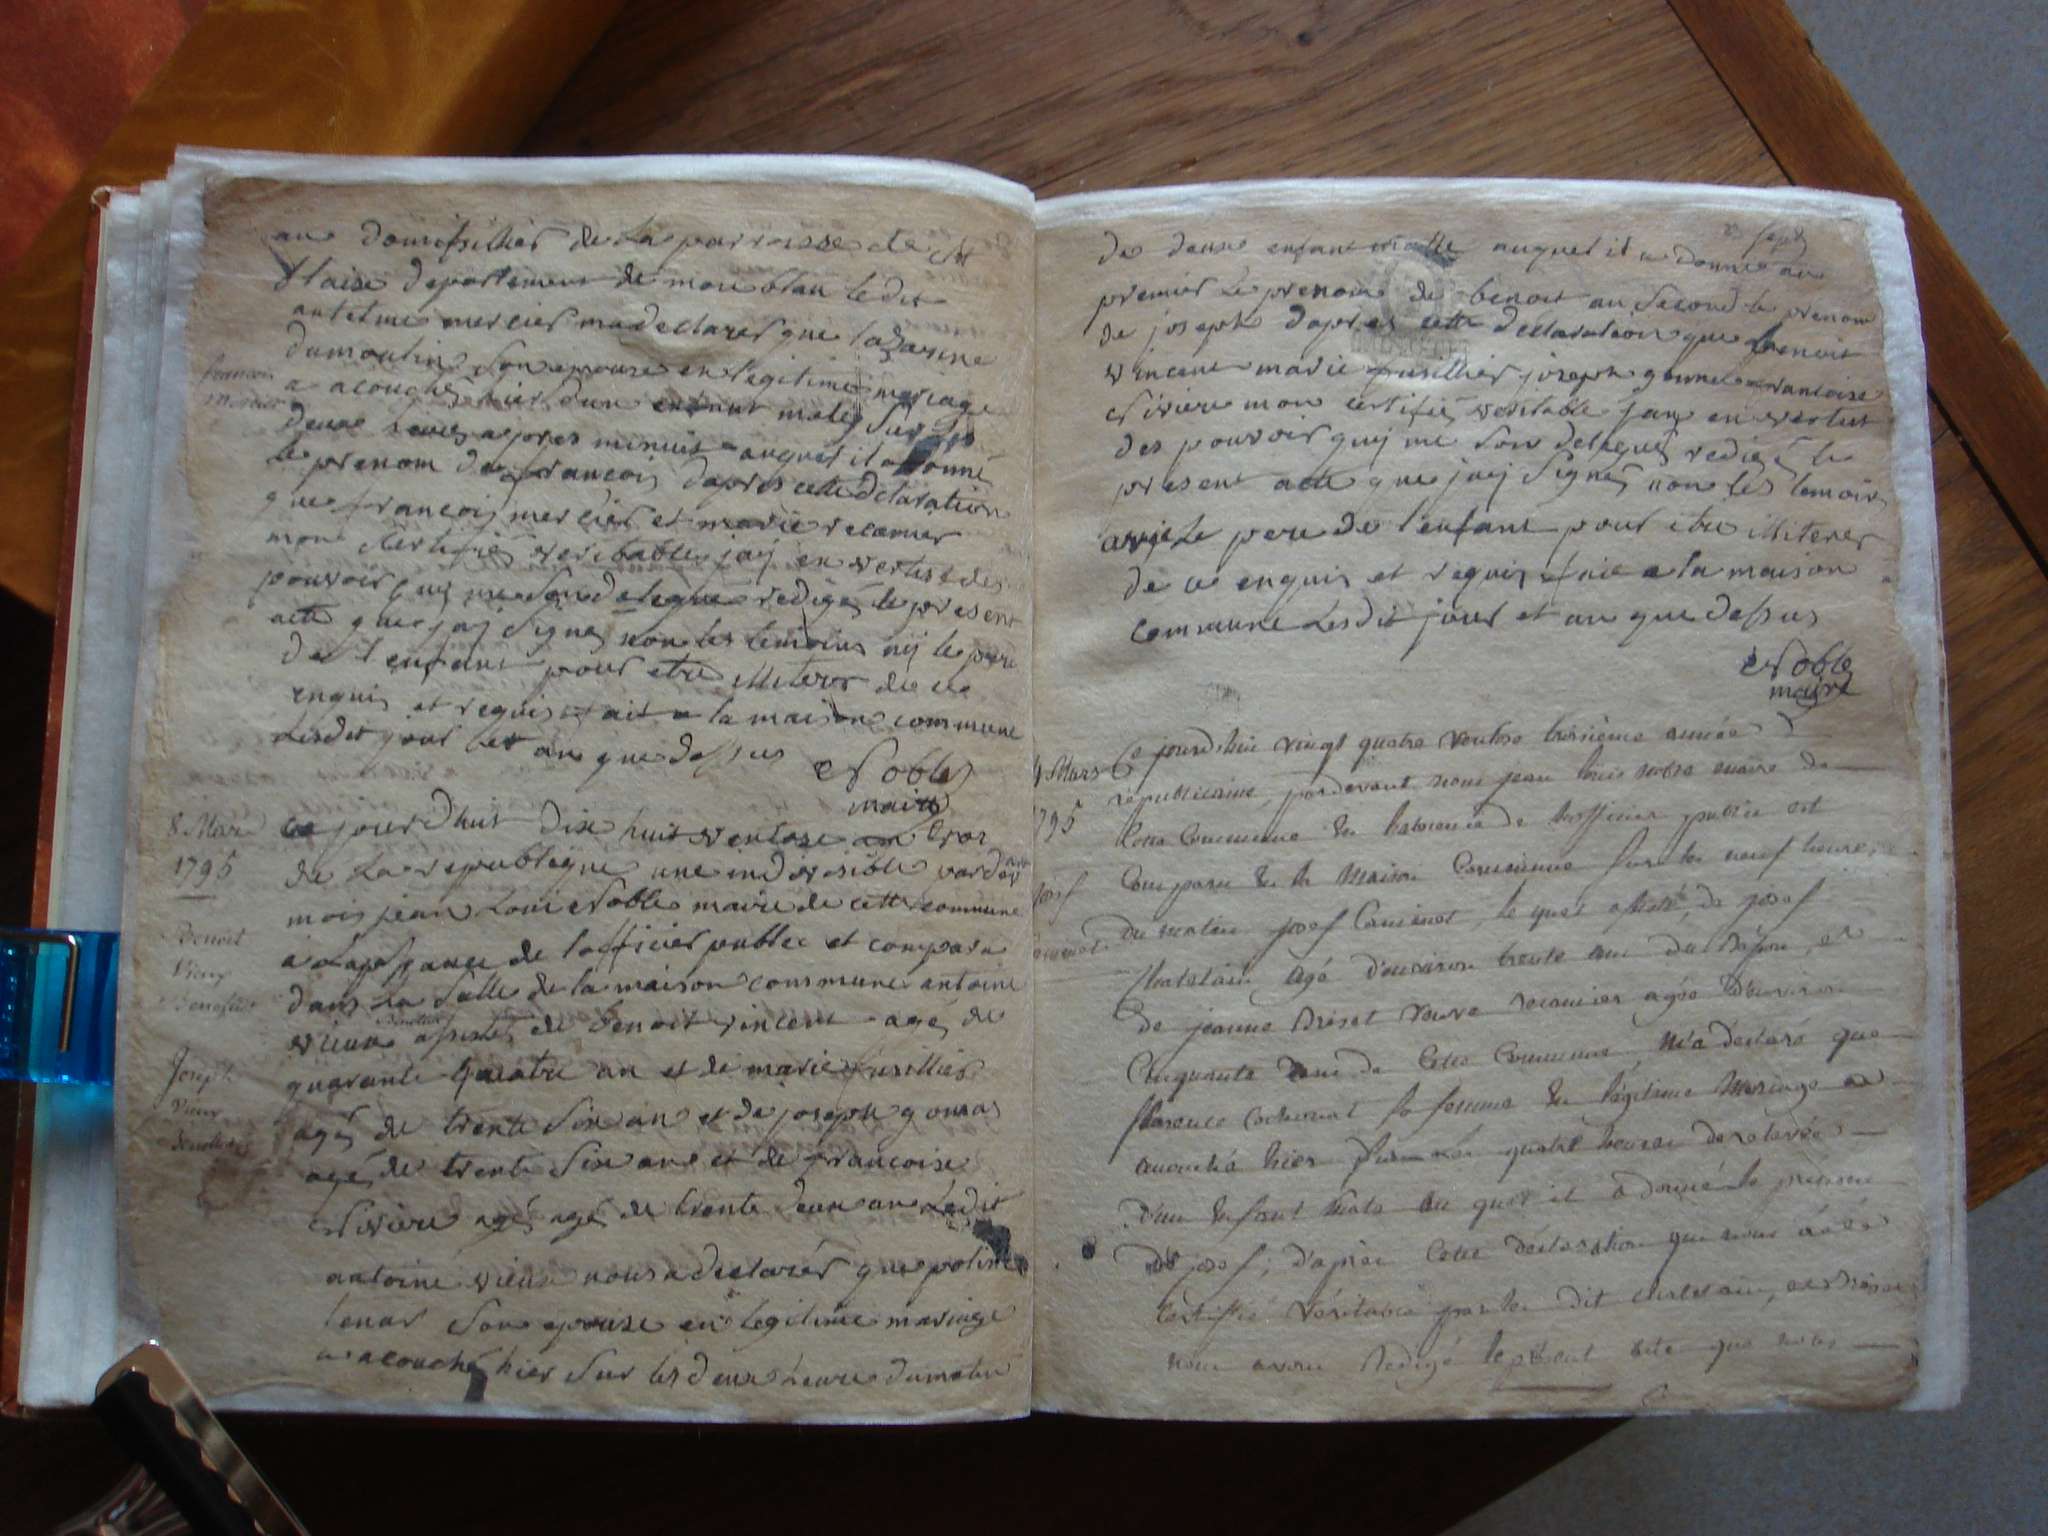 an domissillier de la parroisse de St
Blaise departement de mon blan ledit
antelme mercier ma declarer que lazarine
dumoulin son epouse en legitime mariage
francois
mercier
a acouché hier dun enfant male sur les
deux heures apres minuit auquel il a donné
le prenom de francois dapres cette declaration
que francois mercier et marie recamier
mon certifiés veritable jaij en vertus des
pouvoir quij me son delegué redigé le present
acte que jaij signé non les temoins nij le pere
de lenfant pour etre illiteres de ce
enquis et requis fait a la maison commune
lesdit jour et an que dessus
Noble
maire
8 Mars
1795
ce jourdhuit dix huit ventose an trois
de la republique une indivisible pardevant
mois jean Loui Noble maire de cette commune
Benoit
Vieux
a labssance de lofficier public et compara
dans la salle de la maison commune antoine
vieux assisté de benoit vincent agé de
quarante quatre an et de marie fusillier
Joseph
Vieux
agé de trente six an et de joseph gonnet
agé de trente six ans et de francoise
Riviere agé agé de trente deux an ledit
antoine vieux nous a declarer que poline
tenar son epouse en legitime mariage
a acouché hier sur les deux heure du matin
de deux enfant malle auquel il a donné au
premier le prenom de benoit au second le prenom
de joseph dapres cette declaration que benoit
vincent marie fusillier joseph gonnet francoise
Riviere mon certifiés veritable jaij en vertus
des pouvoir quij me son delegués redigé le
present acte que jaij signé non les temoins
le pere de lenfant pour etre illiterer
de ce enquis et requis fait a la maison
commune lesdit jour et an que dessus
Noble
maire
4 Mars
1795
Ce jourdhui vingt quatre ventose troisième année
républicaine, pardevant nous jean louis noble maire de
cette commune en l'absence de l'officier public est
comparu en la maison commune sur les neuf heures
Josef
du matin josef Caminet, le quel assisté de josef
Chatelain agé d'environ trente ans du dit lieu, et
de jeanne veuve recamier agée d'environ
cinquante ans de cette commune, m'a déclaré que
florence sa femme en légitime mariage a
accouché hier sur les quatre heures de relevée
d'un enfant mâle au quel il a donné le prenom
de josef; d'après cette déclaration que nous a été
certifié véritable par les dit chatelain, et
nous avons rédigé le présent acte que nous